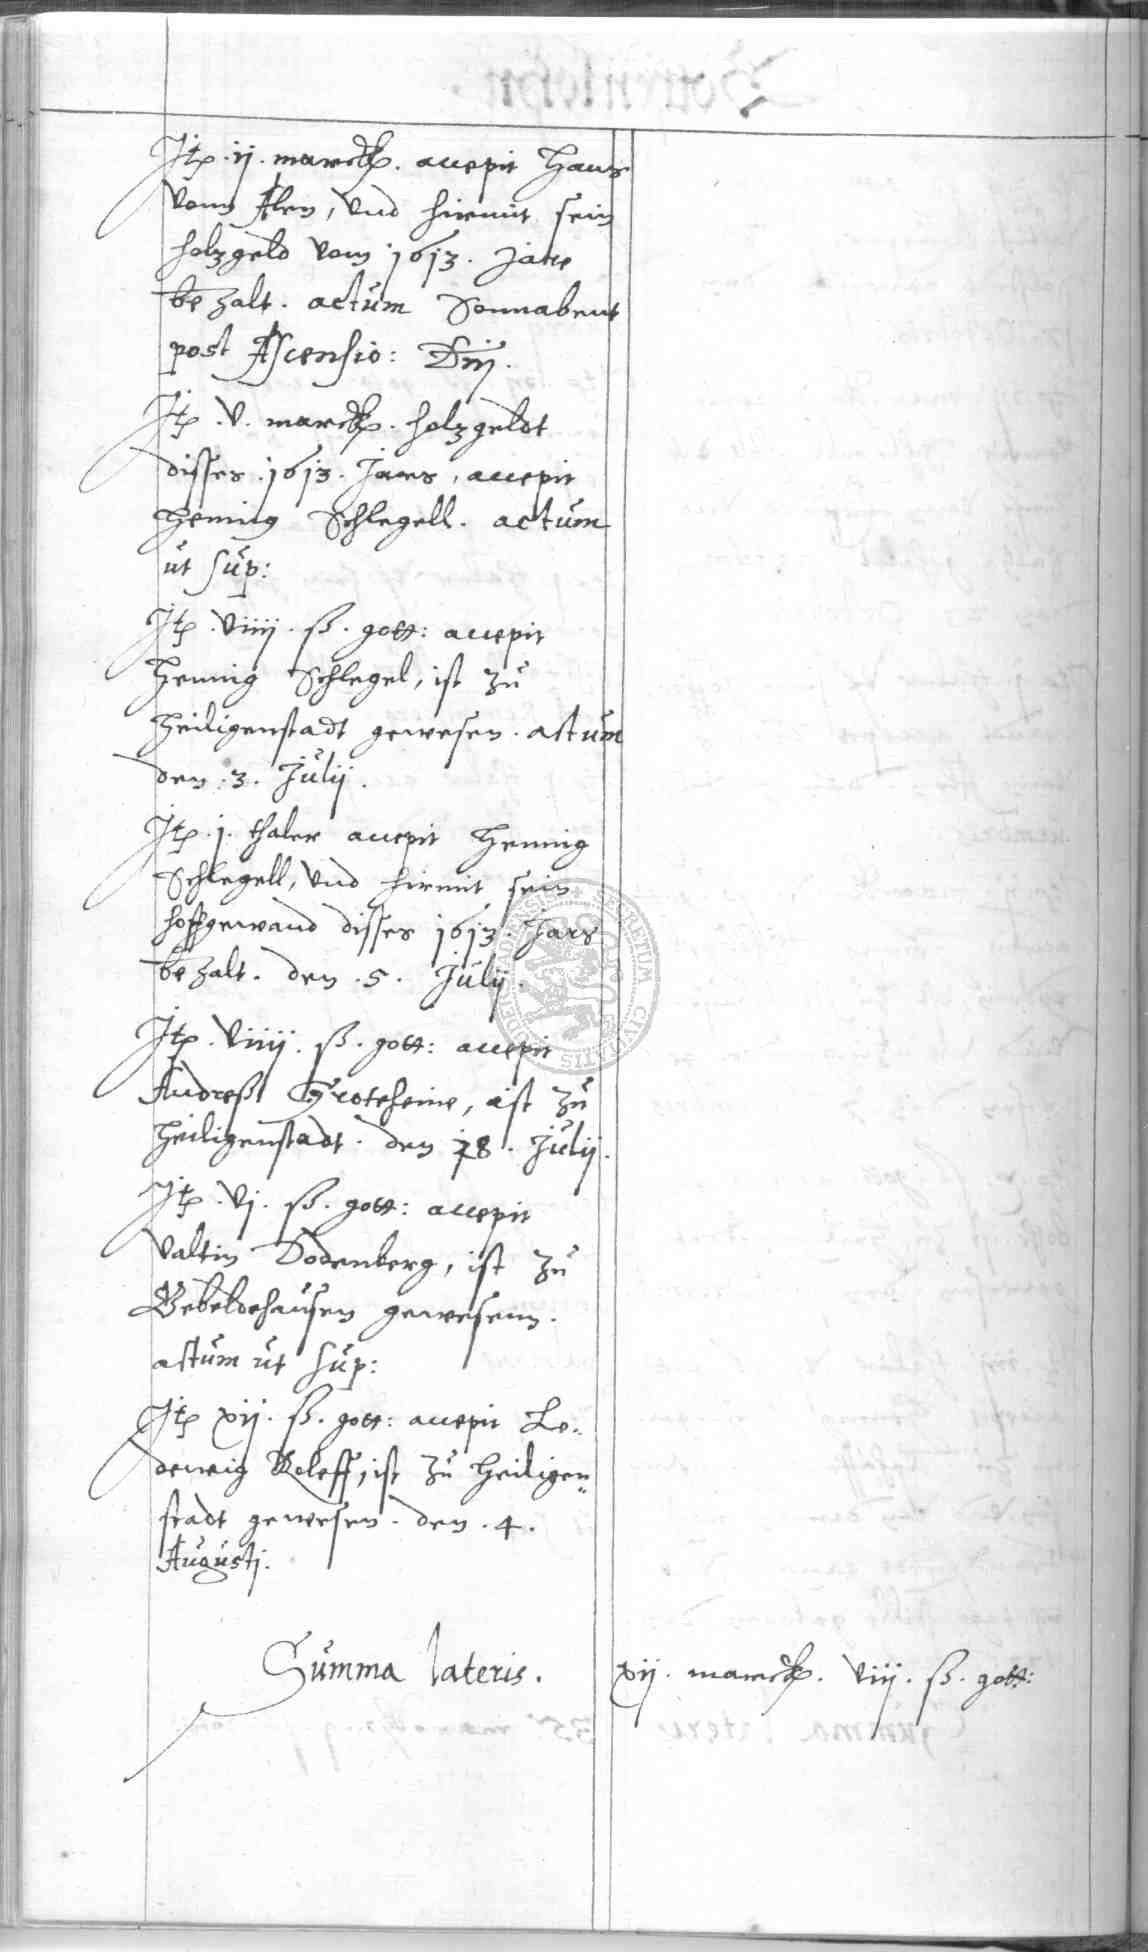 Itp .ij. marckp. accepit Hans
vonn Alen, vnd hirmit sein
holzgeld vom 1613. Jare
bezalt. actum Sonnabent
post Ascensio: Dnj.
Itp .v. marckp. holzgeldt
disses .1613. Jars, accepit
Hennig Schlegell. actum
ut sup:
Itp .viiij. ß. gott: accepit
Hennig Schlegel, ist zu
Heiligenstadt gewesen. actum
den .3. Julij.
Itp .j. thaler accepit Hennig
Schlegell, vnd hirmit sein
hoffgewand disses 1613. Jars
bezalt. den .5. Julij.
Itp .viiij. ß. gott: accepit
Andreß Groteheine, ist zu
Heiligenstadt. den 18. Julij.
Itp .vj. ß. gott: accepit
Valtin Dodenberg, ist zu
Gebeldehausen gewesenn.
actum ut sup:
Itp xij. ß. gott: accepit Lo-
dewig Roleff, ist zu Heiligen-
stadt gewesen. den .4.
Augustj.
Summa lateris. xij. marckp. viij. ß. gott:
SECRETUM CIVITATIS